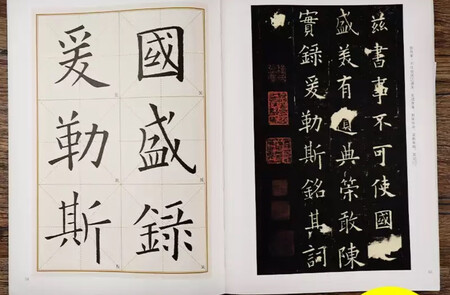 國盛録
爰勒斯
兹書事不可使國
盛美有遺典策敢陳
實録爰勒斯銘其詞